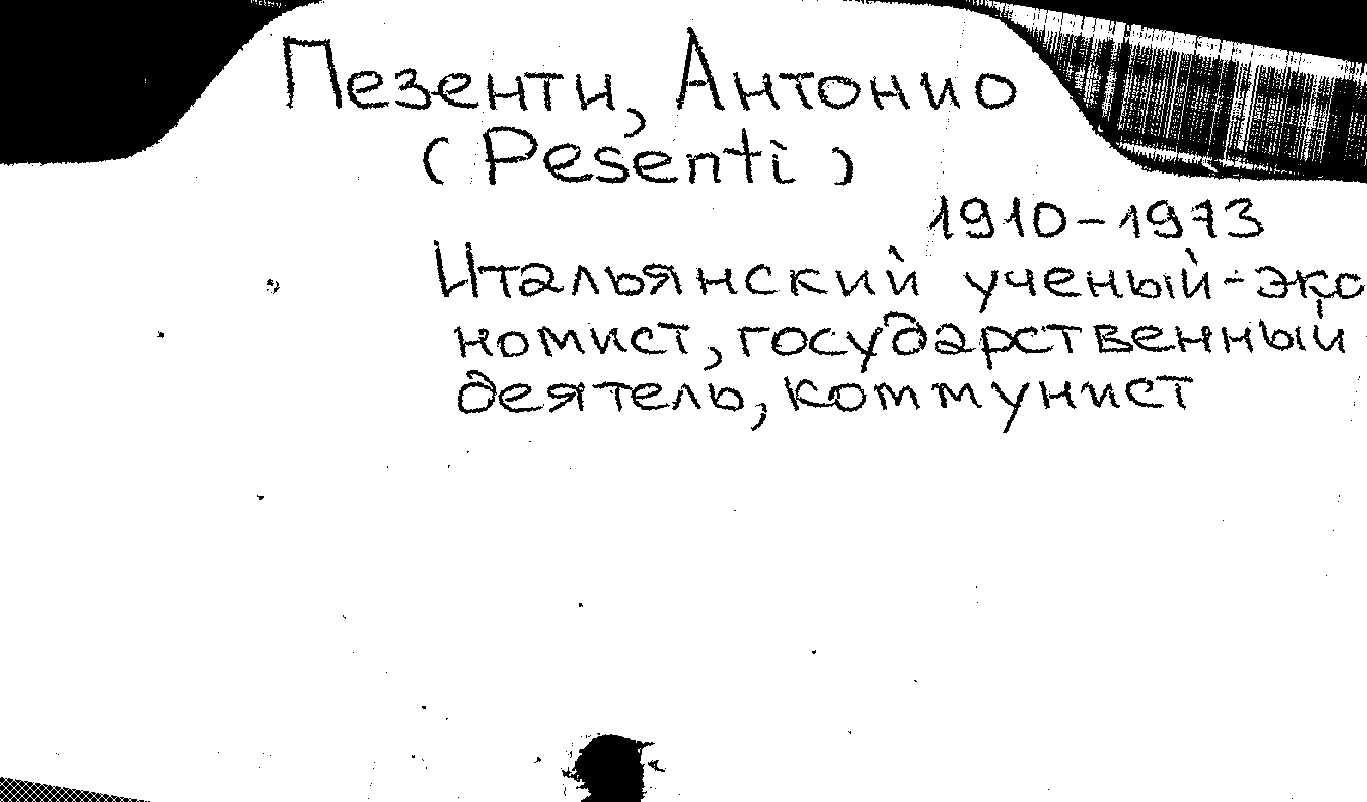 Пезенти, Антонио
(Pesenti)
1910-1973
Итальянский ученый-эко
номист, государственный
деятель, коммунист